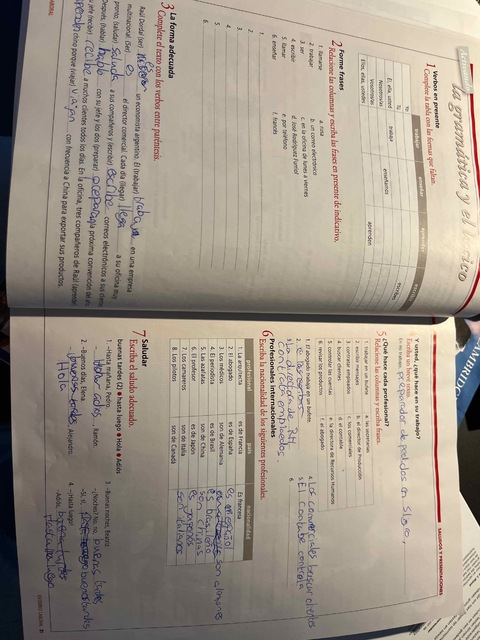 la gramática y el léxico
1 Verbos en presente
Complete la tabla con las formas que faltan.
trabajar enseñar aprender escribir
Yo
Tú
Él, ella, usted trabaja
Nosotros/as enseñamos
Vosotros/as
Ellos, ellas, ustedes aprenden escriben
2 Forme frases
Relacione las columnas y escriba las frases en presente de indicativo.
1. llamarse a. rusa
2. trabajar b. un correo electrónico
3. ser c. en la oficina de lunes a viernes
4. escribir d. José Rodríguez Furriol
5. llamar e. por teléfono
6. enseñar f. francés
1.
2.
3.
4.
5.
6.
3 La forma adecuada
Complete el texto con los verbos entre paréntesis.
Raúl Dordal (ser) es un economista argentino. Él (trabajar) trabaja en una empresa
multinacional. (Ser) es el director comercial. Cada día (llegar) llega a su oficina muy
pronto, (saludar) saluda a sus compañeros y (escribir) escribe correos electrónicos a sus
Después, (hablar) habla con su jefe y los dos (preparar) preparan la próxima convención de
jefe (recibir) recibe a muchos clientes todos los días. En la oficina, tres compañeros de Raúl (aprender)
aprenden chino porque (viajar) viajan con frecuencia a China para exportar sus productos.
SALUDOS Y PRESENTACIONES
Y usted, ¿qué hace en su trabajo?
Escriba un breve texto.
En mi trabajo, preparador de pedidos en
5 ¿Qué hace cada profesional?
Relacione las columnas y escriba frases.
1. trabajar en un buffete a. las secretarias
2. escribir mensajes b. el director de Producción
3. contratar empleados c. los comerciales
4. buscar clientes d. el contable
5. controlar las cuentas e. la directora de Recursos Humanos
6. revisar los productos f. el abogado
1. El abogado trabaja en un bufete. 4. Los comerciales buscar clientes
2. 5. El Contable controla
3. La directora de RH 6.
contrata empleados.
6 Profesionales internacionales
Escriba la nacionalidad de los siguientes profesionales.
profesional país nacionalidad
1. La arquitecta es de Francia Es francesa
2. El abogado es de España es español
3. Los médicos son de Alemania son alemanes
4. El periodista es de Brasil es
5. Las azafatas son de China son chinas
6. El profesor es de Japón es
7. Los camareros son de Italia son italianos
8. Los pilotos son de Canadá
7 Saludar
Escriba el saludo adecuado.
buenas tardes (2) ● hasta luego ● Hola ● Adiós
1. –Hasta mañana, Pedro.
– Adiós, Ramón.
2. –Buenos días, Elena.
– Hola, Alejandro.
3. –Buenas noches, Beatriz.
–¿Noches? No, no, buenas tardes
–Sí, sí, buenas tardes
4. –¡Hasta luego!
–Adiós, hasta luego